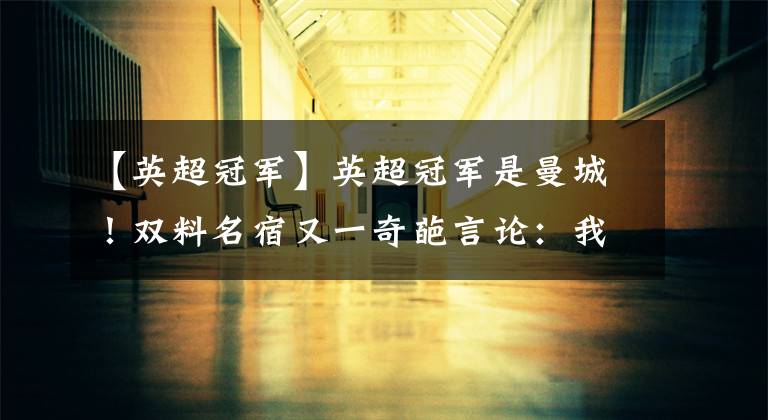 【英超冠军】英超冠军是曼城
！双料名宿又一奇葩言论：我